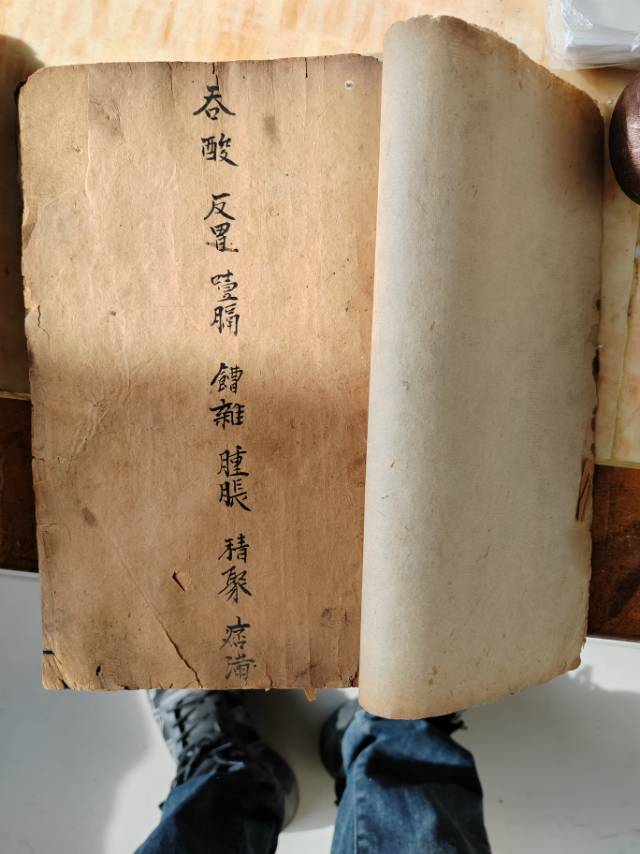 吞酸 反胃 噎膈 饐雜 腫脹 積聚 痞滿